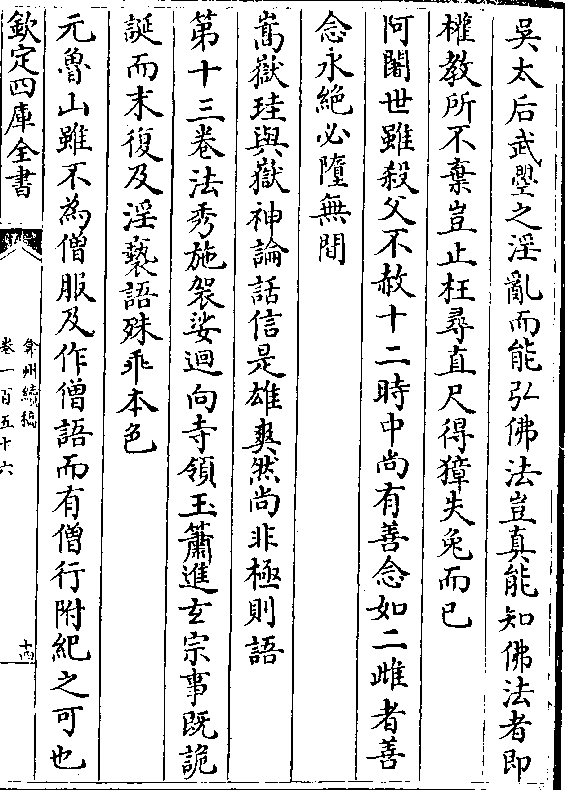 吳太后武曌之淫亂而能弘佛法豈真能知佛法者即
權教所不棄豈止枉尋直尺得獐失兔而已
阿闍世雖殺父不赦十二時中尚有善念如二雌者善
念永絕必墮無間
嵩嶽珪與嶽神論話信是雄爽然尚非極則語
第十三卷法秀施袈裟迴向寺領玉簫進玄宗事既詭
誕而末復及淫褻語殊乖本色
元魯山雖不為僧服及作僧語而有僧行附紀之可也
欽定四庫全書
弇州續稿
卷一百五十六
十四